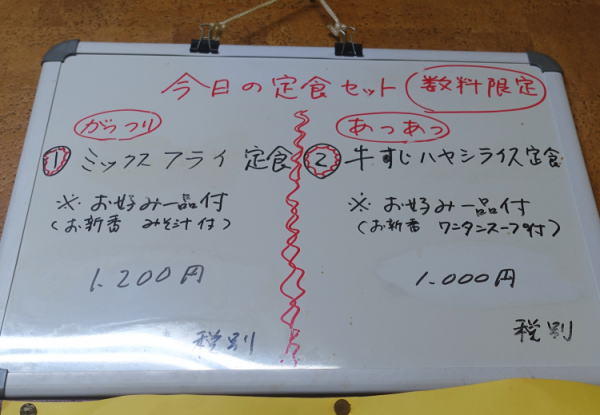 今日の定食セット 数料限定
がっつり
① ミックスフライ 定食
※ お好み一品付
(お新番 みそ汁付)
1,200円
税別
あつあつ
② 牛すじハヤシライス定食
※ お好み一品付
(お新番 ワンタンスープ付)
1.000円
税別